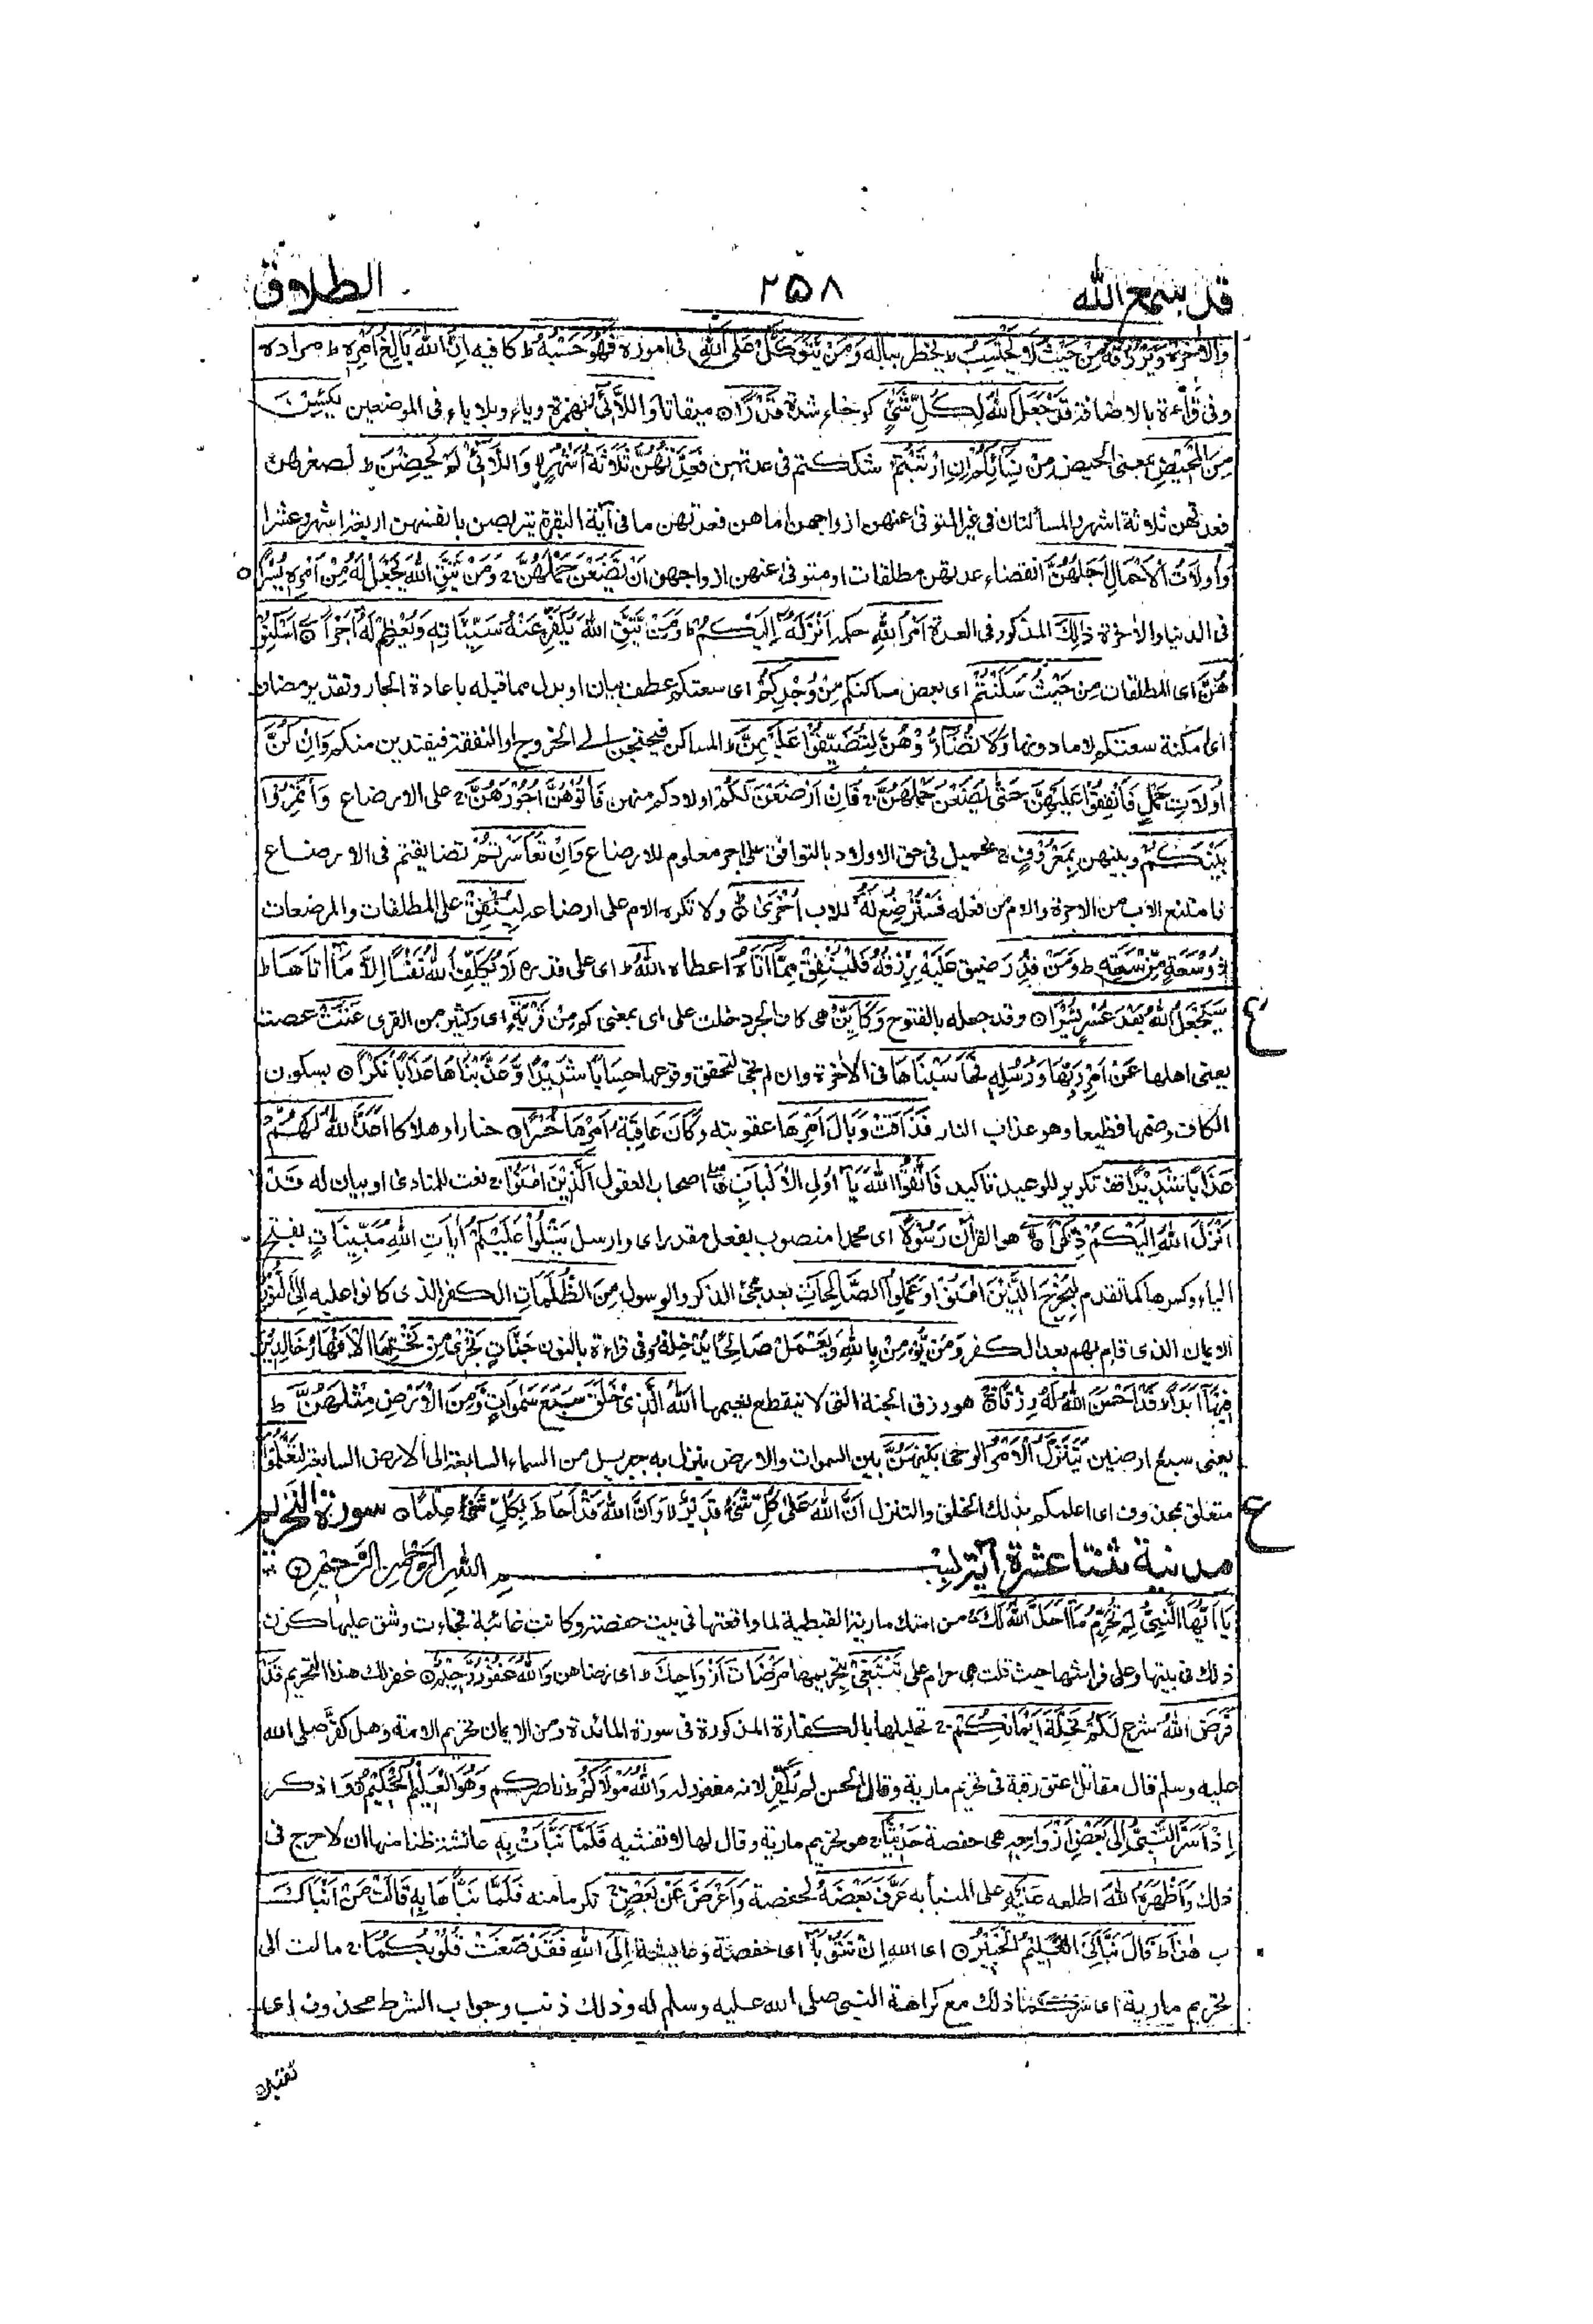 قد سمع الله
٢٥٨
الطلاق
والاٰخرة وَيَرْزُقْهُ مِنْ حَيْثُ لَا يَحْتَسِبُ ط يخطر بباله وَمَنْ يَّتَوَكَّلْ عَلَى اللّٰهِ فى اموره فَهُوَ حَسْبُهٗ ط كافيه اِنَّ اللّٰهَ بَالِغُ اَمْرِهٖ ط مراده
وفى قراءة بالاضافة قَدْ جَعَلَ اللّٰهُ لِكُلِّ شَىْءٍ كرخاء وشدة قَدْرًا ○ ميقاتا وَاللَّآئِىْ بهمزة وياء وبلا ياء فى الموضعين يَئِسْنَ
مِنَ الْمَحِيْضِ بمعنى الحيض مِنْ نِّسَآئِكُمْ اِنِ ارْتَبْتُمْ شككتم فى عدتهن فَعِدَّتُهُنَّ ثَلٰثَةُ اَشْهُرٍ وَّاللَّآئِىْ لَمْ يَحِضْنَ ط لصغرهن
فعدتهن ثلاثة اشهر والمسألتان فى غير المتوفى عنهن ازواجهن اما هن فعدتهن ما فى آية البقرة يتربصن بانفسهن اربعة اشهر وعشرا
وَاُولَاتُ الْاَحْمَالِ اَجَلُهُنَّ انقضاء عدتهن مطلقات او متوفى عنهن ازواجهن اَنْ يَّضَعْنَ حَمْلَهُنَّ ط وَمَنْ يَّتَّقِ اللّٰهَ يَجْعَلْ لَّهٗ مِنْ اَمْرِهٖ يُسْرًا ○
فى الدنيا والاٰخرة ذٰلِكَ المذكور فى العدة اَمْرُ اللّٰهِ حكمه اَنْزَلَهٗ اِلَيْكُمْ ط وَمَنْ يَّتَّقِ اللّٰهَ يُكَفِّرْ عَنْهُ سَيِّئَاتِهٖ وَيُعْظِمْ لَهٗ اَجْرًا ○ اَسْكِنُوْ
هُنَّ اى المطلقات مِنْ حَيْثُ سَكَنْتُمْ اى بعض مساكنكم مِنْ وُّجْدِكُمْ اى سعتكم عطف بيان او بدل مما قبله باعادة الجار وتقدير مضاف
اى امكنة سعتكم لا ما دونها وَلَا تُضَآرُّوْهُنَّ لِتُضَيِّقُوْا عَلَيْهِنَّ ط المساكن فيحتجن الى الخروج او النفقة فيفتدين منكم وَاِنْ كُنَّ
اُولَاتِ حَمْلٍ فَاَنْفِقُوْا عَلَيْهِنَّ حَتّٰى يَضَعْنَ حَمْلَهُنَّ ج فَاِنْ اَرْضَعْنَ لَكُمْ اولادكم منهن فَاٰتُوْهُنَّ اُجُوْرَهُنَّ ج على الارضاع وَأْتَمِرُوْا
بَيْنَكُمْ وبينهن بِمَعْرُوْفٍ ج بجميل فى حق الاولاد بالتوافق على اجر معلوم للارضاع وَاِنْ تَعَاسَرْتُمْ تضايقتم فى الارضاع
فامتنع الاب من الاجرة والام من فعله فَسَتُرْضِعُ لَهٗ للاب اُخْرٰى ط ولا تكره الام على ارضاعه لِيُنْفِقْ على المطلقات والمرضعات
ذُوْ سَعَةٍ مِّنْ سَعَتِهٖ ط وَمَنْ قُدِرَ ضيق عَلَيْهِ رِزْقُهٗ فَلْيُنْفِقْ مِمَّآ اٰتٰهُ اعطاه اللّٰهُ ط اى على قدره لَا يُكَلِّفُ اللّٰهُ نَفْسًا اِلَّا مَآ اٰتَاهَا ط
سَيَجْعَلُ اللّٰهُ بَعْدَ عُسْرٍ يُّسْرًا ○ وقد جعله بالفتوح وَكَاَيِّنْ هى كاف الجر دخلت على اى بمعنى كم مِّنْ قَرْيَةٍ اى وكثير من القرى عَتَتْ عصت
ع
يعنى اهلها عَنْ اَمْرِ رَبِّهَا وَرُسُلِهٖ فَحَاسَبْنَاهَا فى الاٰخرة وان لم تجئ لتحقق وقوعها حِسَابًا شَدِيْدًا وَّعَذَّبْنَاهَا عَذَابًا نُّكْرًا ○ بسكون
الكاف وضمها فظيعا وهو عذاب النار فَذَاقَتْ وَبَالَ اَمْرِهَا عقوبته وَكَانَ عَاقِبَةُ اَمْرِهَا خُسْرًا ○ خسارا وهلاكا اَعَدَّ اللّٰهُ لَهُمْ
عَذَابًا شَدِيْدًا تكرير للوعيد تاكيد فَاتَّقُوا اللّٰهَ يَآ اُولِى الْاَلْبَابِ اصحاب العقول الَّذِيْنَ اٰمَنُوْا نعت للمنادى او بيان له قَدْ
اَنْزَلَ اللّٰهُ اِلَيْكُمْ ذِكْرًا هو القرآن رَسُوْلًا اى محمدا منصوب بفعل مقدر اى وارسل يَّتْلُوْا عَلَيْكُمْ اٰيَاتِ اللّٰهِ مُبَيِّنَاتٍ بفتح
الياء وكسرها كما تقدم لِيُخْرِجَ الَّذِيْنَ اٰمَنُوْا وَعَمِلُوا الصَّالِحَاتِ بعد مجئ الذكر والرسول مِنَ الظُّلُمَاتِ الكفر الذى كانوا عليه اِلَى النُّوْرِ
الايمان الذى قام بهم بعد الكفر وَمَنْ يُّؤْمِنْ بِاللّٰهِ وَيَعْمَلْ صَالِحًا يُّدْخِلْهُ وفى قراءة بالنون جَنَّاتٍ تَجْرِىْ مِنْ تَحْتِهَا الْاَنْهَارُ خَالِدِيْنَ
فِيْهَآ اَبَدًا ط قَدْ اَحْسَنَ اللّٰهُ لَهٗ رِزْقًا هو رزق الجنة التى لا ينقطع نعيمها اَللّٰهُ الَّذِىْ خَلَقَ سَبْعَ سَمٰوَاتٍ وَّمِنَ الْاَرْضِ مِثْلَهُنَّ ط
يعنى سبع ارضين يَتَنَزَّلُ الْاَمْرُ الوحى بَيْنَهُنَّ بين السموات والارض ينزل به جبريل من السماء السابعة الى الارض السابعة لِتَعْلَمُوْا
متعلق بمحذوف اى اعلمكم بذلك الخلق والتنزل اَنَّ اللّٰهَ عَلٰى كُلِّ شَىْءٍ قَدِيْرٌ لا وَّاَنَّ اللّٰهَ قَدْ اَحَاطَ بِكُلِّ شَىْءٍ عِلْمًا ○ سورة التحريم
ع
مدنية ثنتا عشرة آية بسم الله الرحمن الرحيم ○
يَا اَيُّهَا النَّبِىُّ لِمَ تُحَرِّمُ مَآ اَحَلَّ اللّٰهُ لَكَ من امتك مارية القبطية لما واقعتها فى بيت حفصة وكانت غائبة فجاءت وشق عليها كون
ذلك فى بيتها وعلى فراشها حيث قلت هى حرام على تَبْتَغِىْ بتحريمها مَرْضَاتَ اَزْوَاجِكَ ط اى رضاهن وَاللّٰهُ غَفُوْرٌ رَّحِيْمٌ ○ غفر لك هذا التحريم قَدْ
فَرَضَ اللّٰهُ شرع لَكُمْ تَحِلَّةَ اَيْمَانِكُمْ ج تحليلها بالكفارة المذكورة فى سورة المائدة ومن الايمان تحريم الامة وهل كفر صلى الله
عليه وسلم قال مقاتل اعتق رقبة فى تحريم مارية وقال الحسن لم يكفر لانه مغفور له وَاللّٰهُ مَوْلَاكُمْ ط ناصركم وَهُوَ الْعَلِيْمُ الْحَكِيْمُ ○ وَ اذكر
اِذْ اَسَرَّ النَّبِىُّ اِلٰى بَعْضِ اَزْوَاجِهٖ هى حفصة حَدِيْثًا ج هو تحريم مارية وقال لها لا تفشيه فَلَمَّا نَبَّاَتْ بِهٖ عائشة ظنا منها ان لا حرج فى
ذلك وَاَظْهَرَهُ اللّٰهُ اطلعه عَلَيْهِ على المنبأ به عَرَّفَ بَعْضَهٗ لحفصة وَاَعْرَضَ عَنْ بَعْضٍ ج تكرما منه فَلَمَّا نَبَّاَهَا بِهٖ قَالَتْ مَنْ اَنْبَاَكَ
هٰذَا ط قَالَ نَبَّاَنِىَ الْعَلِيْمُ الْخَبِيْرُ ○ اى الله اِنْ تَتُوْبَآ اى حفصة وعائشة اِلَى اللّٰهِ فَقَدْ صَغَتْ قُلُوْبُكُمَا ج مالت الى
تحريم مارية اى سركما ذلك مع كراهة النبى صلى الله عليه وسلم له وذلك ذنب وجواب الشرط محذوف اى
تقبلا